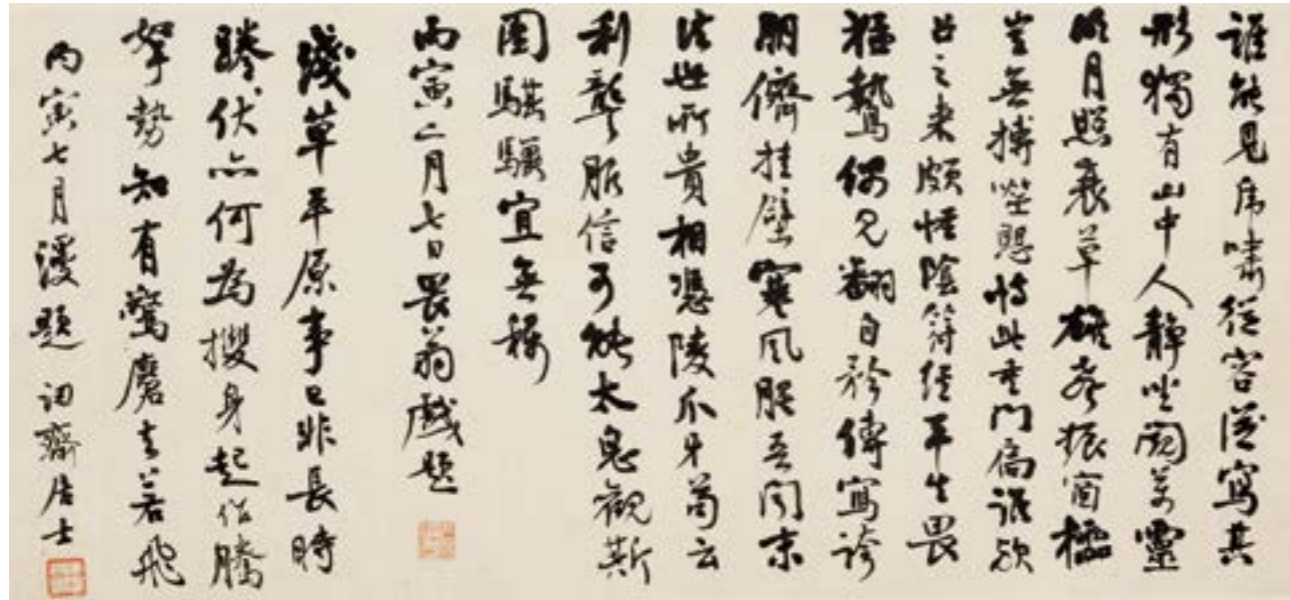 誰能見虎嘯從容寫其
形獨有山中人靜坐閱萬靈
明月照衰草雄聲振窗櫺
豈無搏噬恃此重門扃
之來頗悟陰符經平生畏
猛鷙偶見翻自矜傳寫誇
朋儕挂壁寒風腥吾聞末
法世所貴相憑陵爪牙苟云
利聾信可能太息觀斯
圖騏驥宜無稱
丙寅二月七日畏翁戲題
淺草平原事已非長時
踡伏亦何為攫身起作騰
拏勢知有驚麐去若飛
丙寅七月漫題 訒齋居士